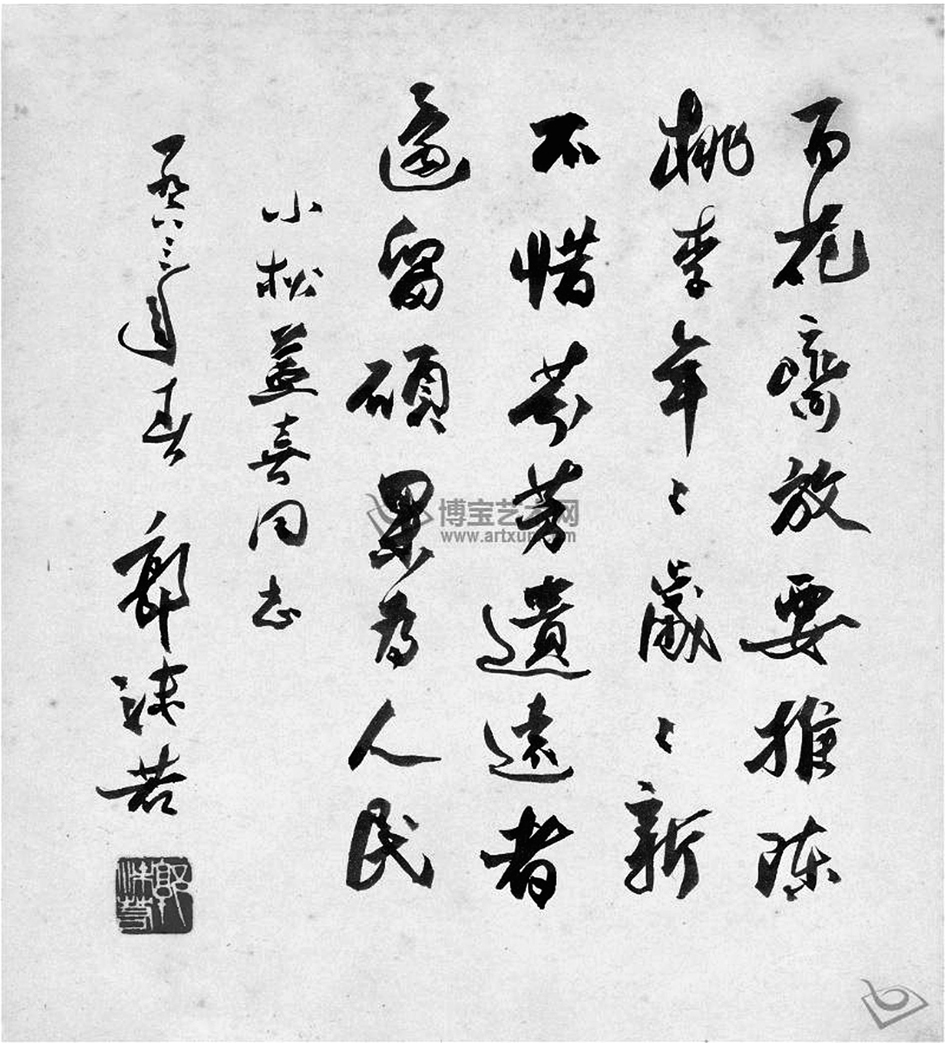 百花齊放要推陳
桃李年〻歲〻新
不惜芬芳遺遠者
還留碩果為人民
小松益喜同志
一九六三年春 郭沫若
郭沫若
博宝艺术网
www.artxun.com